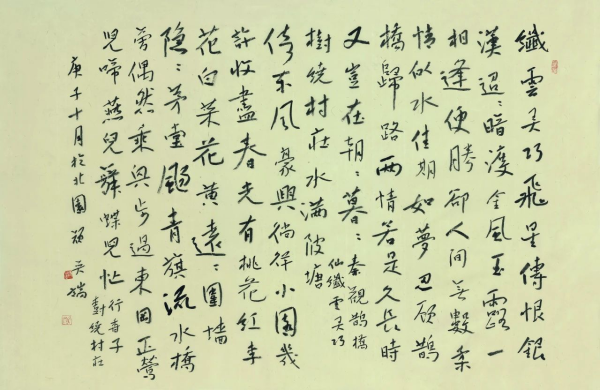 纖雲弄巧飛星傳恨銀
漢迢:暗渡金風玉露一
相逢便勝卻人間無數柔
情似水佳期如夢忍顧鵲
橋歸路兩情若是久長時
又豈在朝:暮:秦觀鵲橋
仙纖雲弄巧
樹繞村莊水滿陂塘
倚東風豪興徜徉小園幾
許收盡春光有桃花紅李
花白菜花黃遠:圍墻
隱:茅堂颺青旗流水橋
旁偶然乘興步過東岡正鶯
兒啼燕兒舞蝶兒忙行香子
樹繞村莊
庚子十月於北園